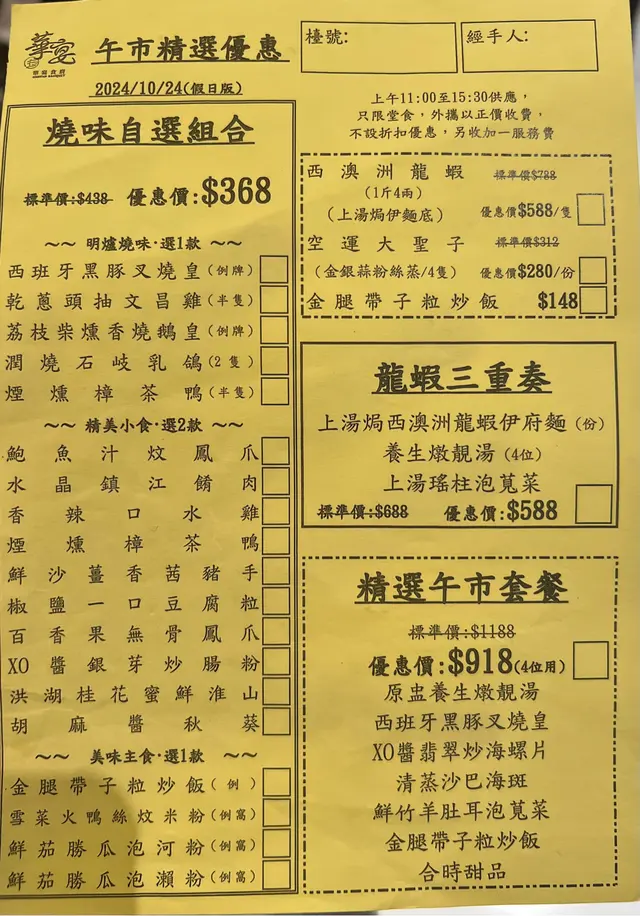 華宴
華宴食府
午市精選優惠
2024/10/24(假日版)
檯號:
經手人:
上午11:00至15:30供應，
只限堂食，外攜以正價收費，
不設折扣優惠，另收加一服務費
燒味自選組合
標準價:$438 優惠價:$368
~~ 明爐燒味·選1款 ~~
西班牙黑豚叉燒皇(例牌)
乾蔥頭抽文昌雞(半隻)
荔枝柴燻香燒鵝皇(例牌)
潤燒石岐乳鴿(2隻)
煙燻樟茶鴨(半隻)
~~ 精美小食·選2款 ~~
鮑魚汁炆鳳爪
水晶鎮江餚肉
香辣口水雞
煙燻樟茶鴨
鮮沙薑香茜豬手
椒鹽一口豆腐粒
百香果無骨鳳爪
XO醬銀芽炒腸粉
洪湖桂花蜜鮮淮山
胡麻醬秋葵
~~ 美味主食·選1款 ~~
金腿帶子粒炒飯(例)
雪菜火鴨絲炆米粉(例窩)
鮮茄勝瓜泡河粉(例窩)
鮮茄勝瓜泡瀨粉(例窩)
西澳洲龍蝦 標準價$788
(1斤4兩)
(上湯焗伊麵底) 優惠價$588/隻
空運大聖子 標準價$312
(金銀蒜粉絲蒸/4隻) 優惠價$280/份
金腿帶子粒炒飯 $148
龍蝦三重奏
上湯焗西澳洲龍蝦伊府麵(份)
養生燉靚湯(4位)
上湯瑤柱泡莧菜
標準價:$688 優惠價:$588
精選午市套餐
標準價:$1188
優惠價:$918(4位用)
原盅養生燉靚湯
西班牙黑豚叉燒皇
XO醬翡翠炒海螺片
清蒸沙巴海斑
鮮竹羊肚耳泡莧菜
金腿帶子粒炒飯
合時甜品